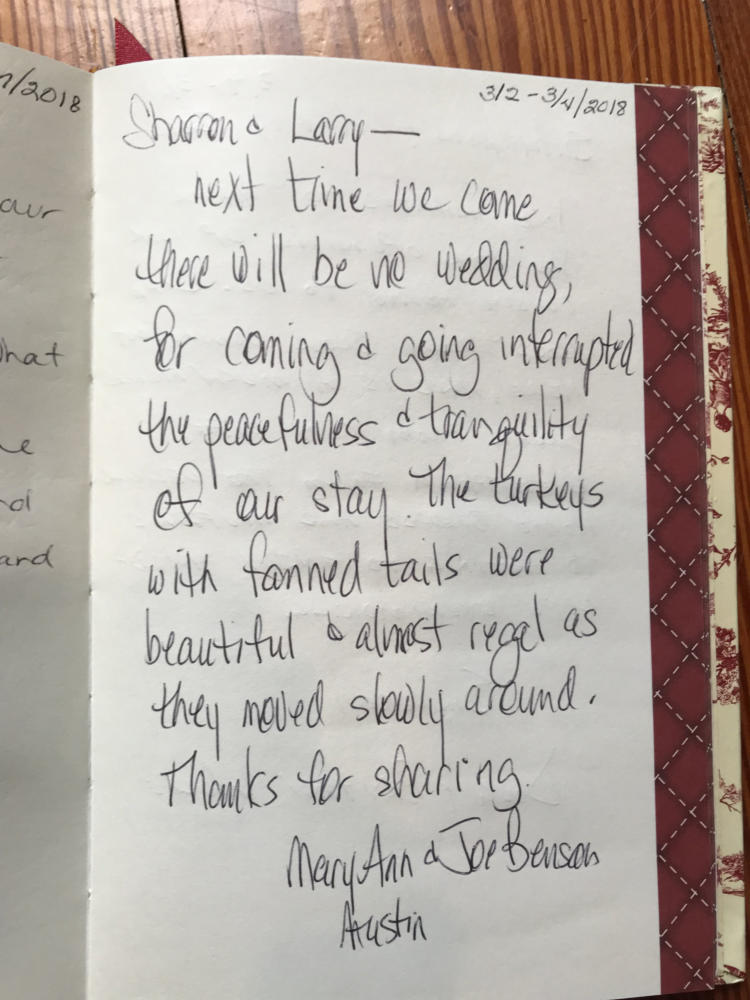 /2018
our
what
nd
and
3/2 - 3/4/2018
Sharron & Larry —
next time we come
there will be no wedding,
for coming & going interrupted
the peacefulness & tranquility
of our stay. The turkeys
with fanned tails were
beautiful & almost regal as
they moved slowly around.
Thanks for sharing.
Mary Ann & Joe Benson
Austin